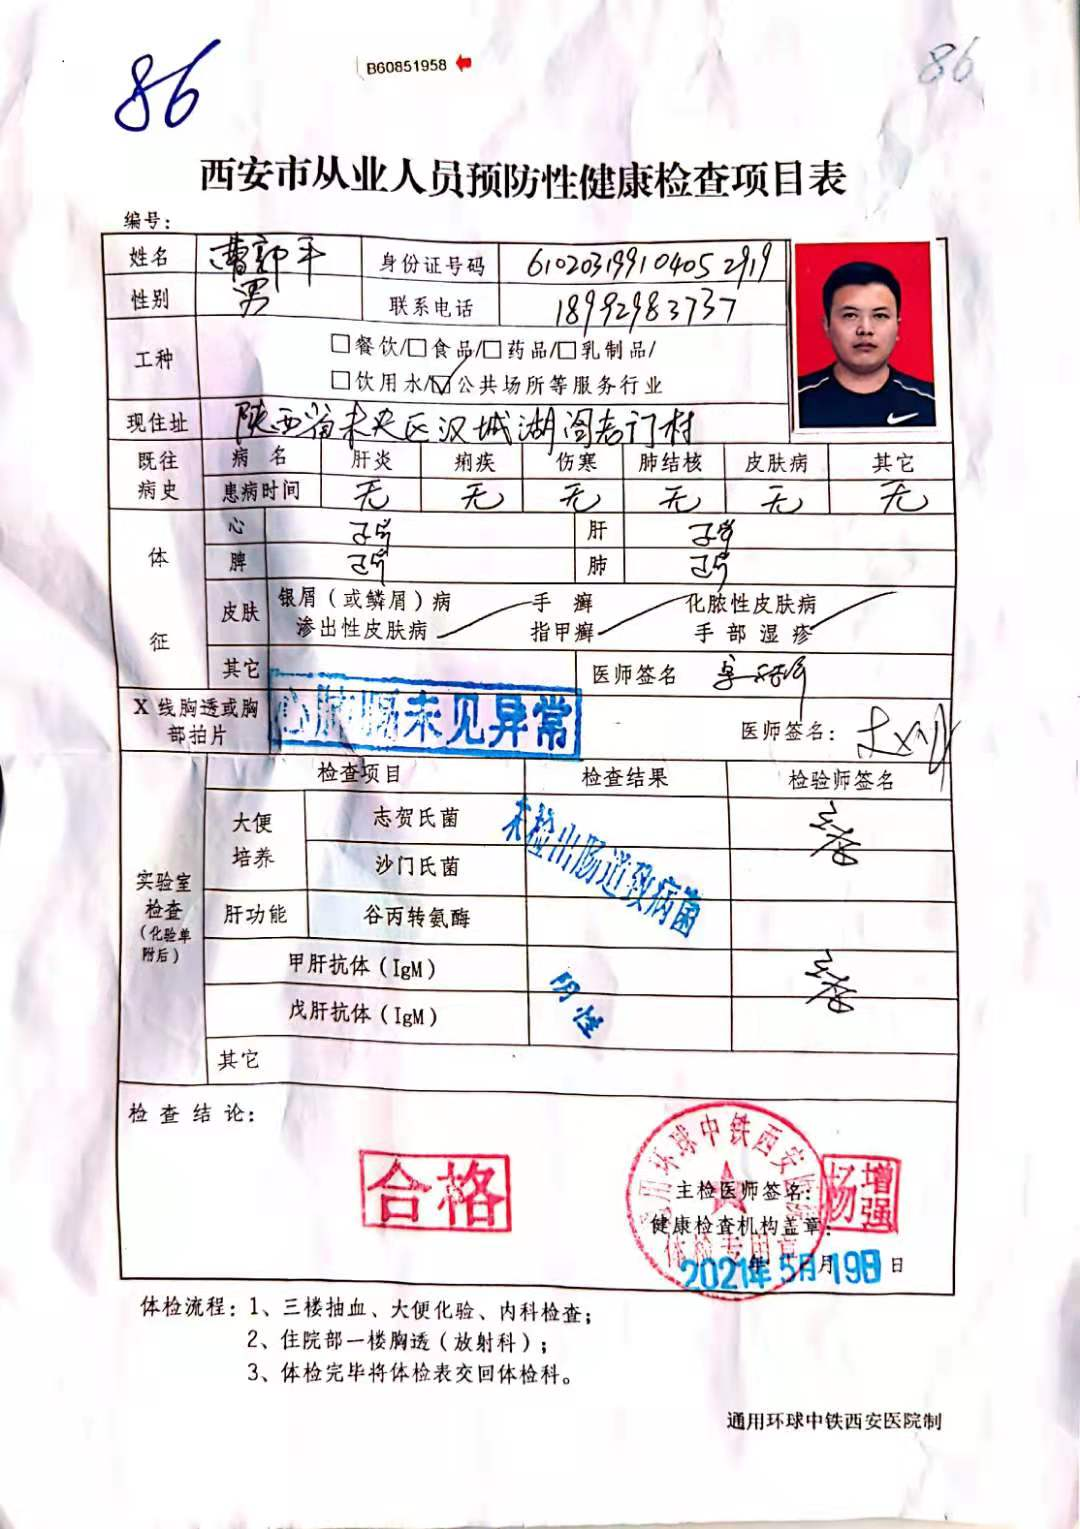 86
B60851958
86
西安市从业人员预防性健康检查项目表
编号：
姓名 曹郭平 身份证号码 610203199104052919
性别 男 联系电话 18992983737
工种 □餐饮/□食品/□药品/□乳制品/
□饮用水/☑公共场所等服务行业
现住址 陕西省未央区汉城湖阁老门村
既往病史 病名 肝炎 痢疾 伤寒 肺结核 皮肤病 其它
患病时间 无 无 无 无 无 无
体征 心 正常 肝 正常
脾 正常 肺 正常
皮肤 银屑（或鳞屑）病 手癣 化脓性皮肤病
渗出性皮肤病 指甲癣 手部湿疹
其它 医师签名
X线胸透或胸部拍片 心肺膈未见异常 医师签名：
检查项目 检查结果 检验师签名
实验室检查（化验单附后）
大便培养 志贺氏菌 未检出肠道致病菌
沙门氏菌
肝功能 谷丙转氨酶
甲肝抗体（IgM） 阴性
戊肝抗体（IgM）
其它
检查结论：
合格
通用环球中铁西安医院
体检专用章
主检医师签名： 杨增强
健康检查机构盖章：
2021年5月19日
年 月 日
体检流程：1、三楼抽血、大便化验、内科检查；
2、住院部一楼胸透（放射科）；
3、体检完毕将体检表交回体检科。
通用环球中铁西安医院制